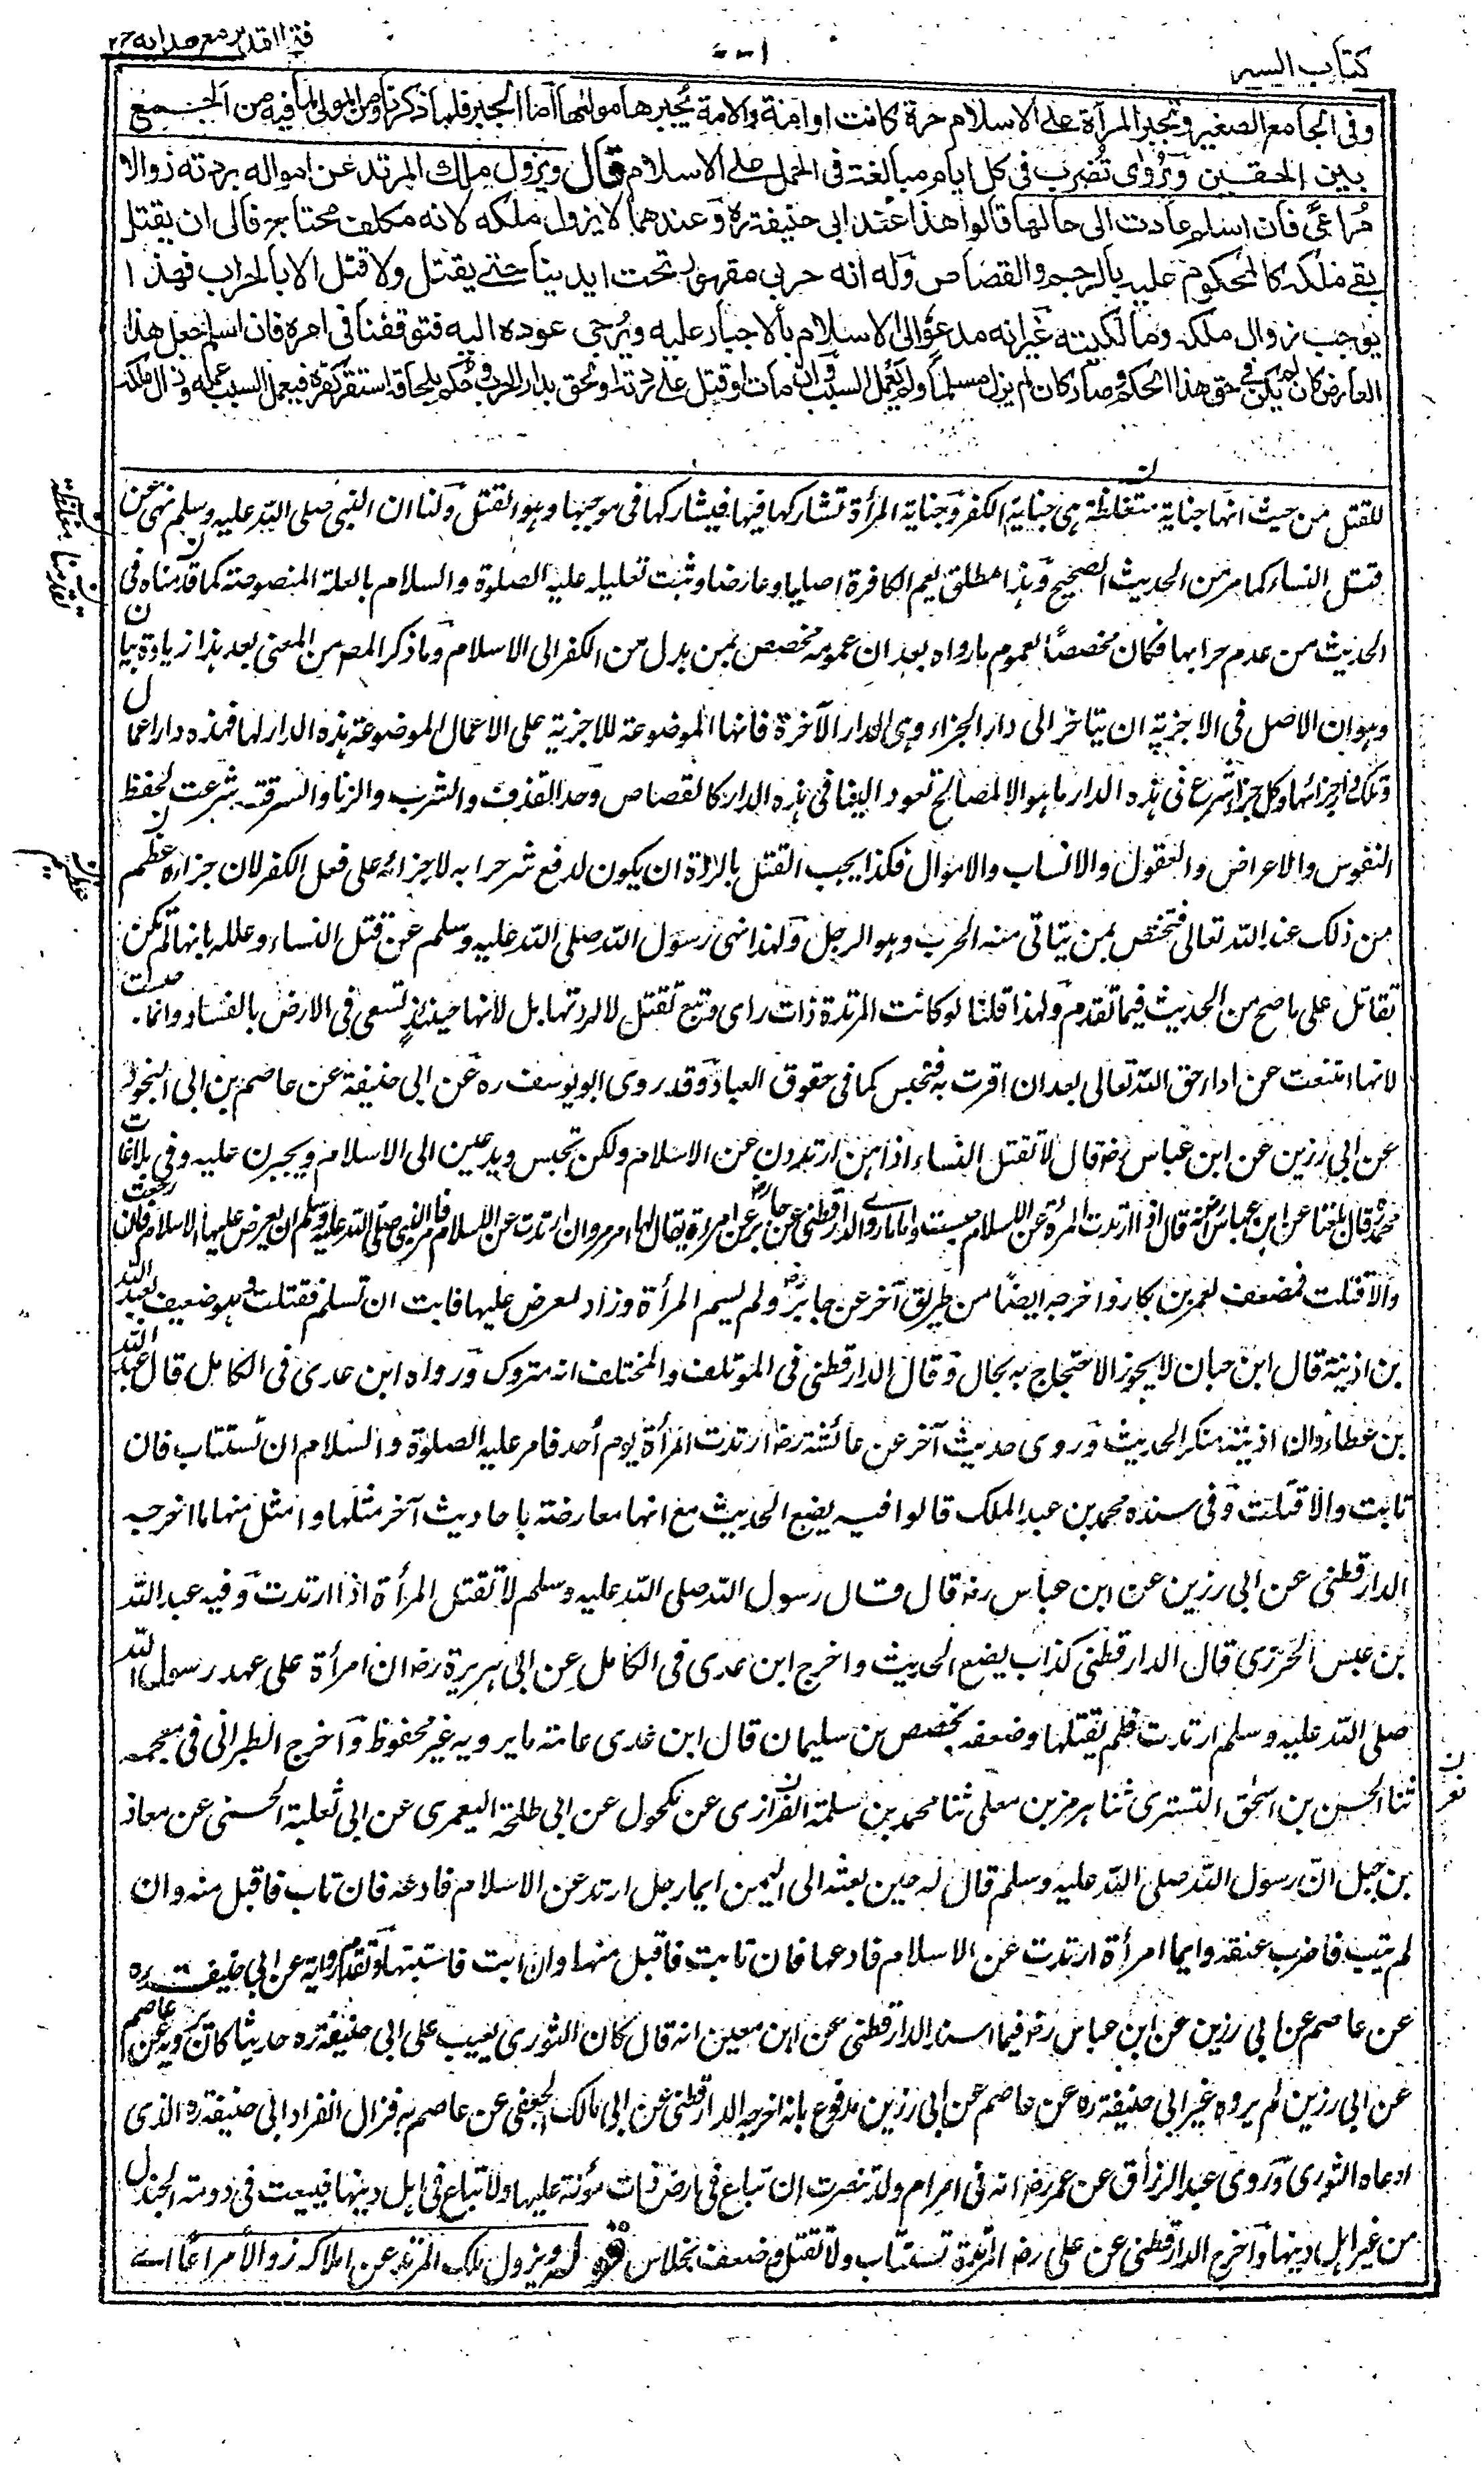 كتاب السير
فتح القدير مع هدايه ج٢
وفى الجامع الصغير وتجبر المرأة على الاسلام حرة كانت او امة والامة يجبرها مولٰها اما الجبر فلما ذكرنا ومن المولى لما فيه من الجمع
بين الحقين ويُروٰى تُضرب فى كل ايام مبالغة فى الحمل على الاسلام قال ويزول ملك المرتد عن امواله بردته زوالا
مُراعًى فان اسلم عادت الى حالها قالوا هذا عند ابى حنيفة ره وعندهما لا يزول ملكه لانه مكلف محتاج فالى ان يقتل
بقى ملكه كالمحكوم عليه بالرجم والقصاص وله انه حربى مقهور تحت ايدينا حتى يقتل ولا قتل الا بالحراب فهذا
يوجب زوال ملكه ومالكيته غير انه مدعوّ الى الاسلام بالاجبار عليه ويُرجى عوده اليه فتوقفنا فى امره فان اسلم جعل هذا
العارض كان لم يكن فى حق هذا الحكم وصار كان لم يزل مسلما ولم يعمل السبب وان مات او قتل على ردته او لحق بدار الحرب وحكم بلحاقه استقر كفره فيعمل السبب عمله وزال ملكه
للقتل من حيث انها جناية متغلظة هى جناية الكفر وجناية المرأة تشاركها فيها فيشاركها فى موجبها وهو القتل ولنا ان النبى صلى الله عليه وسلم نهى عن
قتل النساء كما مر من الحديث الصحيح وهذا مطلق يعم الكافرة اصليا وعارضا وثبت تعليله عليه الصلوة والسلام بالعلة المنصوصة كما قدمناه فى
الحديث من عدم حرابها فكان مخصصًا لعموم ما رواه بعد ان عمومه مخصص بمن بدل من الكفر الى الاسلام وما ذكر المص من المعنى بعد هذا زيادة بيان
وهو ان الاصل فى الاجزية ان يتاخر الى دار الجزاء وهى الدار الآخرة فانها الموضوعة للاجزية على الاعمال الموضوعة هذه الدار لها فهذه دار اعمال
وتلك دار جزائها وكل جزاء شرع فى هذه الدار ما هو الا لمصالح تعود الينا فى هذه الدار كالقصاص وحد القذف والشرب والزنا والسرقة شرعت لحفظ
النفوس والاعراض والعقول والانساب والاموال فكذا يجب القتل بالردة ان يكون لدفع شر حرابه لا جزاء على فعل الكفر لان جزاءه اعظم
من ذلك عند الله تعالى فتختص بمن يتاتى منه الحرب وهو الرجل ولهذا نهى رسول الله صلى الله عليه وسلم عن قتل النساء وعلله بانها لم تكن
تقاتل على ما صح من الحديث فيما تقدم ولهذا قلنا لو كانت المرتدة ذات راى وتبع تقتل لا لردتها بل لانها حينئذٍ تسعى فى الارض بالفساد وانما حبست
لانها امتنعت عن اداء حق الله تعالى بعد ان اقرت به فتحبس كما فى حقوق العباد وقد روى ابو يوسف ره عن ابى حنيفة عن عاصم بن ابى النجود
عن ابى رزين عن ابن عباس رض قال لا تقتل النساء اذا هن ارتددن عن الاسلام ولكن تحبس ويدعين الى الاسلام ويجبرن عليه وفى بلاغات
محمد قال بلغنا عن ابن عباس رض انه قال اذا ارتدت المرأة عن الاسلام حبست واما ما روى الدارقطنى عن جابر رض عن امرأة يقال لها ام مروان ارتدت عن الاسلام فامر النبى صلى الله عليه وسلم ان يعرض عليها الاسلام فان رجعت
والا قتلت فمضعف بمعمر بن بكار واخرجه ايضًا من طريق آخر عن جابر رض ولم يسم المرأة وزاد لعرض عليها فابت ان تسلم فقتلت وهو ضعيف بعبد الله
بن اذينة قال ابن حبان لا يجوز الاحتجاج به بحال وقال الدارقطنى فى المؤتلف والمختلف انه متروك ورواه ابن عدى فى الكامل قال عبد الله
بن عطاء وان اذينة منكر الحديث وروى حديث آخر عن عائشة رض ارتدت امرأة يوم أحد فامر عليه الصلوة والسلام ان تستتاب فان
تابت والا قتلت وفى سنده محمد بن عبد الملك قالوا فيه يضع الحديث مع انها معارضة باحاديث آخر مثلها وامثل منها ما اخرجه
الدارقطنى عن ابى رزين عن ابن عباس رض قال قال رسول الله صلى الله عليه وسلم لا تقتل المرأة اذا ارتدت وفيه عبد الله
بن عبس الخزرى قال الدارقطنى كذاب يضع الحديث واخرج ابن عدى فى الكامل عن ابى هريرة رض ان امرأة على عهد رسول الله
صلى الله عليه وسلم ارتدت فلم يقتلها وضعفه بحفص بن سليمان قال ابن عدى عامة ما يرويه غير محفوظ واخرج الطبرانى فى معجمه
ثنا الحسين بن اسحق التسترى ثنا هرمز بن معلى ثنا محمد بن سلمة الفزازى عن مكحول عن ابى طلحة اليعمرى عن ابى ثعلبة الخسنى عن معاذ
بن جبل ان رسول الله صلى الله عليه وسلم قال له حين بعثه الى اليمن ايما رجل ارتد عن الاسلام فادعه فان تاب فاقبل منه وان
لم يتب فاضرب عنقه وايما امرأة ارتدت عن الاسلام فادعها فان تابت فاقبل منها وان ابت فاستتبها وتقدم رواية عن ابى حنيفة ره
عن عاصم عن ابى رزين عن ابن عباس رض فيما اسند الدارقطنى عن ابن معين انه قال كان الثورى يعيب على ابى حنيفة ره حديثا كان يرويه عن عاصم
عن ابى رزين لم يروه غير ابى حنيفة ره عن عاصم عن ابى رزين مدفوع بانه اخرجه الدارقطنى عن ابى مالك الجعفى عن عاصم به فزال انفراد ابى حنيفة ره الذى
ادعاه الثورى وروى عبد الرزاق عن عمر رض انه فى ام ولد تنصرت ان تباع فى ارض ذات مؤنة عليها ولا تباع فى اهل دينها فبيعت فى دومة الجندل
من غير اهل دينها واخرج الدارقطنى عن على رض المرتدة تستتاب ولا تقتل وضعف بخلاس قوله ويزول ملك المرتد عن املاكه زوالا مراعًا اے